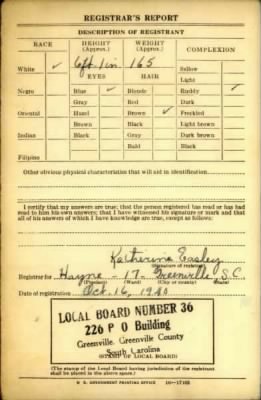 REGISTRAR'S REPORT
DESCRIPTION OF REGISTRANT
RACE HEIGHT (Approx.) WEIGHT (Approx.) COMPLEXION
White ✓ 6ft 1 in 165 Sallow
EYES HAIR Light
Negro Blue ✓ Blonde Ruddy ✓
Gray Red Dark
Oriental Hazel Brown ✓ Freckled
Brown Black Light brown
Indian Black Gray Dark brown
Bald Black
Filipino
Other obvious physical characteristics that will aid in identification
I certify that my answers are true; that the person registered has read or has had
read to him his own answers; that I have witnessed his signature or mark and that
all of his answers of which I have knowledge are true, except as follows:
Katherine Easley
(Signature of registrar)
Registrar for Hayne - 17 - Greenville, S.C.
(Precinct) (Ward) (City or county) (State)
Date of registration Oct. 16, 1940
LOCAL BOARD NUMBER 36
226 P O Building
Greenville, Greenville County
South Carolina
(STAMP OF LOCAL BOARD)
(The stamp of the Local Board having jurisdiction of the registrant
shall be placed in the above space.)
U. S. GOVERNMENT PRINTING OFFICE